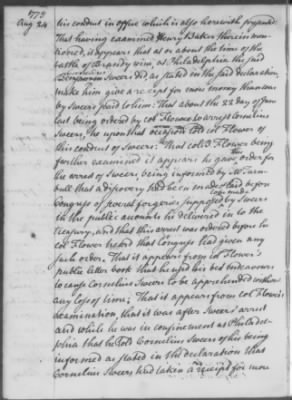 1778
Aug 24
his conduct in office which is also herewith presented
That having examined Henry Baker therein men-
tioned, it appears that at or about the time of the
battle of Brandywine, at Philadelphia the said
Cornelius Sweers did as stated in the said declaration,
make him give a receipt for more money than was
by Sweers paid to him: That about the 22 day of June
last being ordered by col Flower to arrest Cornelius
Sweers, he upon that occasion told col Flower of
this conduct of Sweers; That col B. Flower being
further examined it appears he gave order for
the arrest of Sweers, being informed by Mr Turn-
bull that a discovery had been made & laid before
Congress of several forgeries supposed by Sweers
to be made
in the public accounts he delivered in to the
treasury, and that this arrest was ordered before he
col Flower heard that Congress had given any
such order. That it appears from col Flower's
public letter book that he used his best endeavours
to cause Cornelius Sweers to be apprehended without
any loss of time; That it appears from col Flower's
examination, that it was after Sweers' arrest
and while he was in confinement at Philadel-
phia that he told Cornelius Sweers of his being
informed as stated in the declaration that
Cornelius Sweers had taken a receipt for more